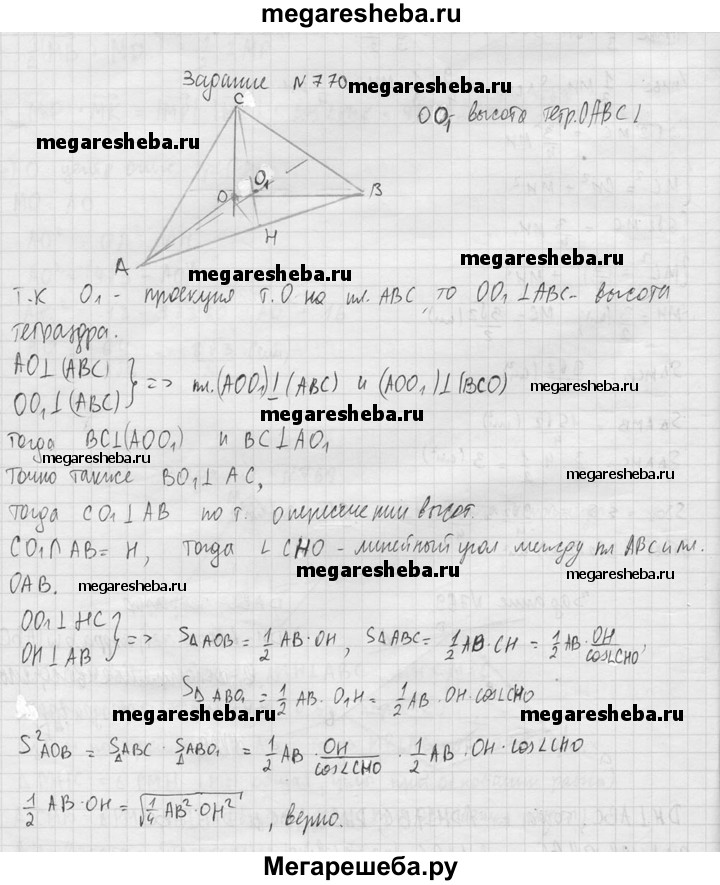 megaresheba.ru
Задание N770
megaresheba.ru
C
OO₁ высота тетр. OABC⊥
megaresheba.ru
O O₁ B
H
A
megaresheba.ru
megaresheba.ru
т.к O₁ - проекция т. O на пл. ABC, то OO₁⊥ABC - высота
тетраэдра.
AO⊥(ABC)
OO₁⊥(ABC) } => пл.(AOO₁)⊥(ABC) и (AOO₁)⊥(BCO)
megaresheba.ru
megaresheba.ru
Тогда BC⊥(AOO₁) и BC⊥AO₁
megaresheba.ru
Точно также BO₁⊥AC,
megaresheba.ru
тогда CO₁⊥AB по т. о пересечении высот.
CO₁∩AB=H, тогда ∠CHO - линейный угол между пл ABC и пл.
megaresheba.ru
OAB.
megaresheba.ru
megaresheba.ru
OO₁⊥HC
OH⊥AB } => S△AOB = 1/2 AB·OH, S△ABC = 1/2 AB·CH = 1/2 AB · OH/cos∠CHO,
S△ABO₁ = 1/2 AB·O₁H = 1/2 AB·OH·cos∠CHO
megaresheba.ru
megaresheba.ru
S²△AOB = S△ABC · S△ABO₁ = 1/2 AB · OH/cos∠CHO · 1/2 AB·OH·cos∠CHO
1/2 AB·OH = √(1/4 AB²·OH²), верно.
Мегарешеба.ру